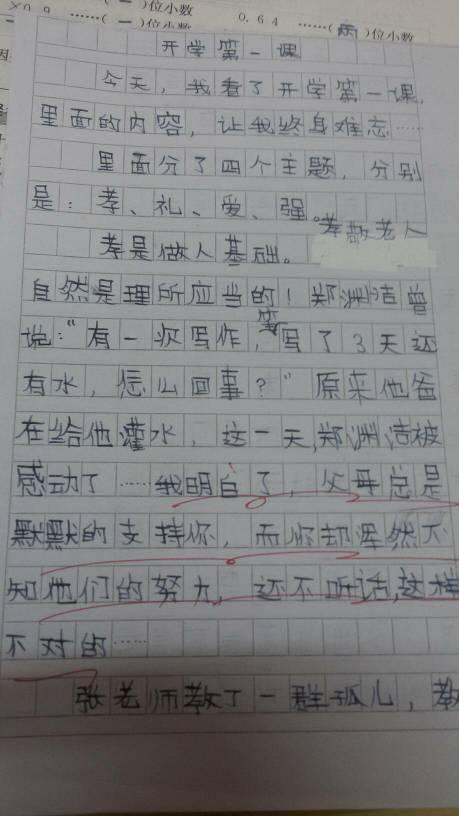 ……(一)位小数 0.64 ……(两)位小数
开学第一课
今天，我看了开学第一课，
里面的内容，让我终身难忘……
里面分了四个主题，分别
是：孝、礼、爱、强。
孝是做人基础。孝敬老人
自然是理所应当的！郑渊洁曾
说：“有一次写作，笔写了3天还
有水，怎么回事？”原来他爸
在给他灌水，这一天，郑渊洁被
感动了……我明白了，父母总是
默默的支持你，而你却浑然不
知他们的努力，还不听话，这样
不对的……
张老师教了一群孤儿，教